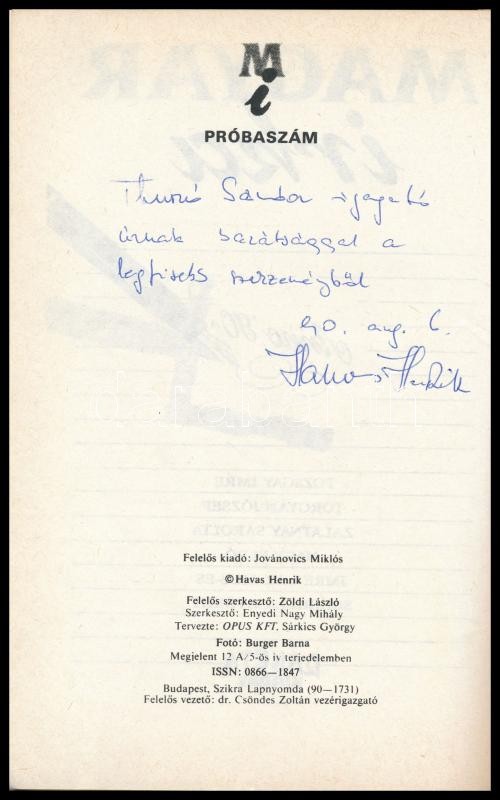 M
i
PRÓBASZÁM
Thurzó Sándor igazgató
úrnak barátsággal a
legfrissebb szerzeményből
90. aug. 6.
Havas Henrik
Felelős kiadó: Jovánovics Miklós
©Havas Henrik
Felelős szerkesztő: Zöldi László
Szerkesztő: Enyedi Nagy Mihály
Tervezte: OPUS KFT. Sárkics György
Fotó: Burger Barna
Megjelent 12 A/5-ös ív terjedelemben
ISSN: 0866—1847
Budapest, Szikra Lapnyomda (90—1731)
Felelős vezető: dr. Csöndes Zoltán vezérigazgató